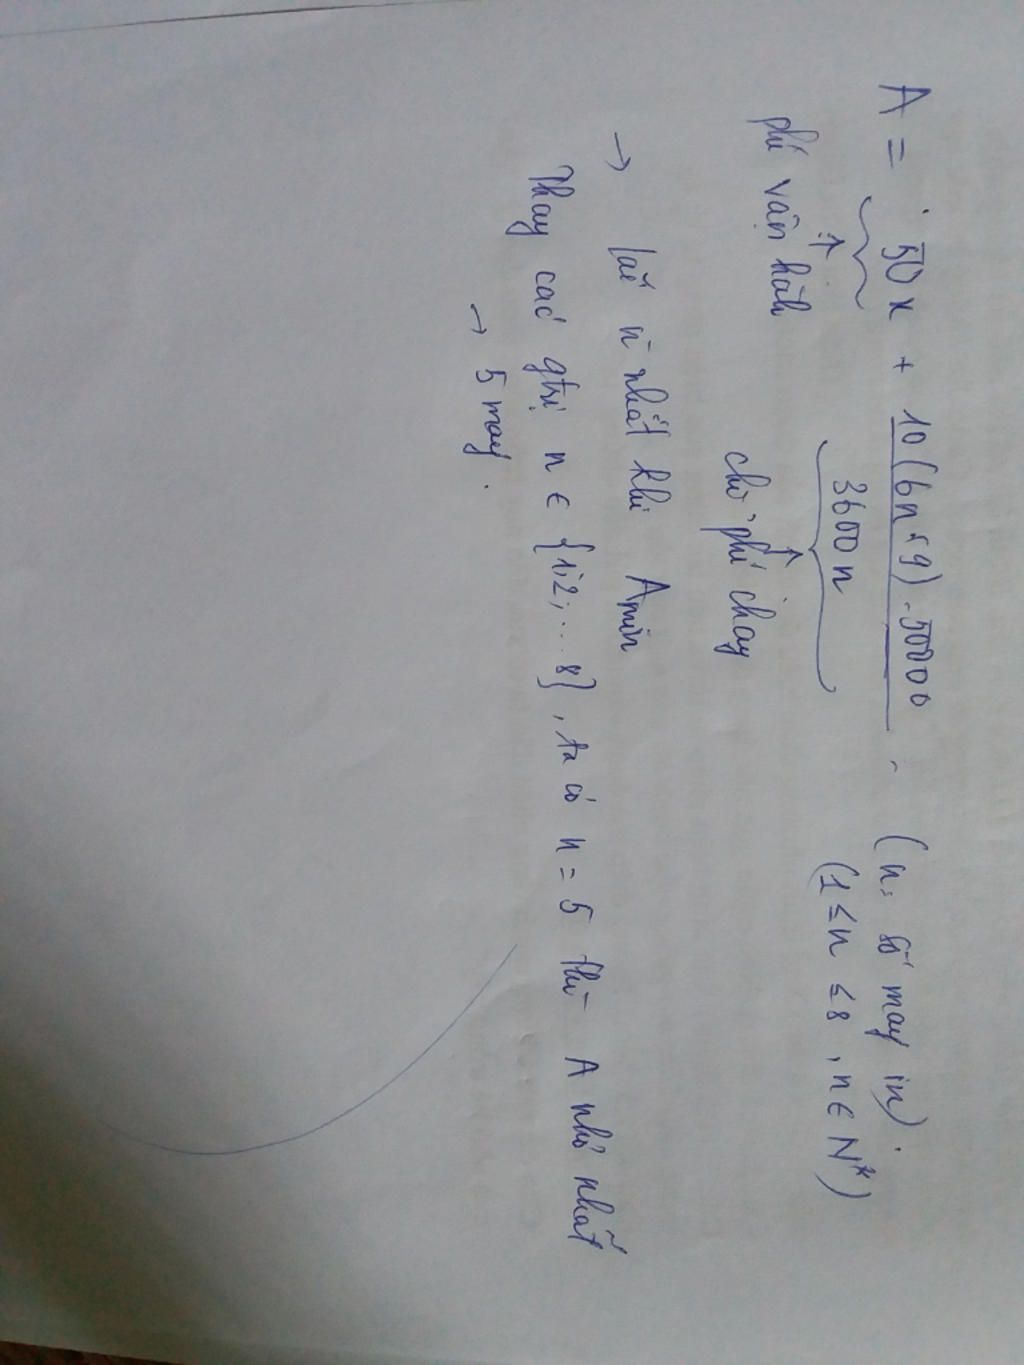 A = 50x + 10(6n+9).50000 (n: số máy in).
3600n (1 ≤ n ≤ 8, n ∈ N*)
phí vận hành chi phí chạy
→ lãi n nhất khi Amin
Thay các gtrị n ∈ {1;2;...8}, ta có n = 5 thì A nhỏ nhất
→ 5 máy.